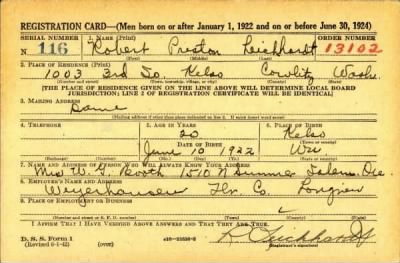 REGISTRATION CARD—(Men born on or after January 1, 1922 and on or before June 30, 1924)
SERIAL NUMBER 1. NAME (Print) ORDER NUMBER
N 116 Robert Preston Leickhardt 13102
(First) (Middle) (Last)
2. PLACE OF RESIDENCE (Print)
1003 3rd So. Kelso Cowlitz Wash.
(Number and street) (Town, township, village, or city) (County) (State)
[THE PLACE OF RESIDENCE GIVEN ON THE LINE ABOVE WILL DETERMINE LOCAL BOARD
JURISDICTION; LINE 2 OF REGISTRATION CERTIFICATE WILL BE IDENTICAL]
3. MAILING ADDRESS
Same
[Mailing address if other than place indicated on line 2. If same insert word same]
4. TELEPHONE 5. AGE IN YEARS 6. PLACE OF BIRTH
20 Kelso
DATE OF BIRTH
June 10 1922 Wn
(Exchange) (Number) (Mo.) (Day) (Yr.) (State or country)
7. NAME AND ADDRESS OF PERSON WHO WILL ALWAYS KNOW YOUR ADDRESS
Mrs W. G. 1510 N Summer Salem, Ore.
8. EMPLOYER'S NAME AND ADDRESS
Weyerhauser Co. Longview
9. PLACE OF EMPLOYMENT OR BUSINESS
(Number and street or R. F. D. number) (Town) (County) (State)
I AFFIRM THAT I HAVE VERIFIED ABOVE ANSWERS AND THAT THEY ARE TRUE.
D. S. S. Form 1
(Revised 6-1-42) (over)
R Leickhardt